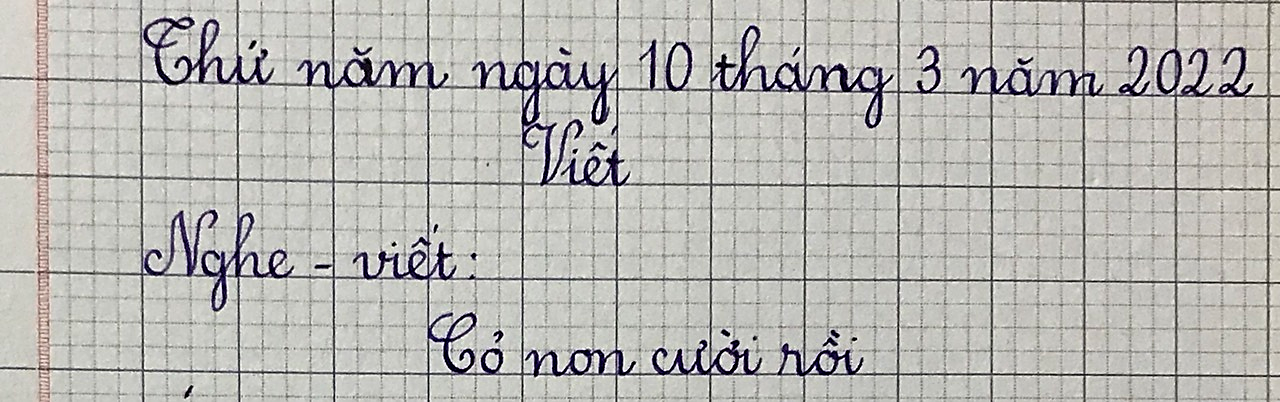 Thứ năm ngày 10 tháng 3 năm 2022
Viết
Nghe - viết:
Cỏ non cười rồi